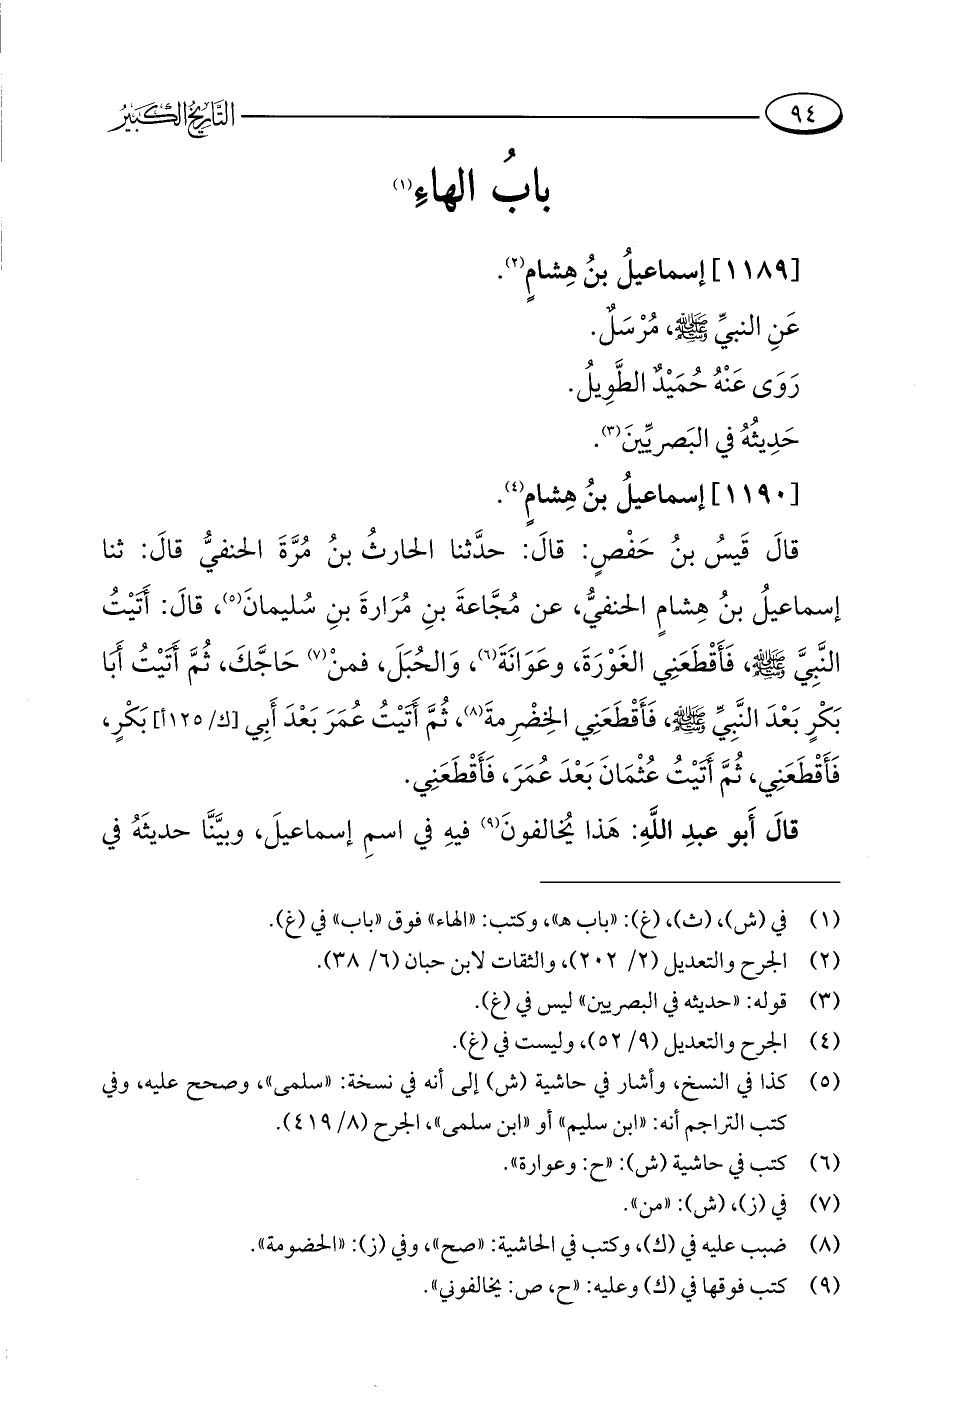 ٩٤ التَّارِيخُ الكَبِيرُ
بابُ الهاءِ(١)
[١١٨٩] إسماعيلُ بنُ هِشامٍ(٢).
عَنِ النبيِّ ﷺ، مُرْسَلٌ.
رَوَى عَنْهُ حُمَيْدٌ الطَّوِيلُ.
حَدِيثُهُ في البَصريِّينَ(٣).
[١١٩٠] إسماعيلُ بنُ هِشامٍ(٤).
قالَ قَيسُ بنُ حَفْصٍ: قالَ: حدَّثنا الحارثُ بنُ مُرَّةَ الحنفيُّ قالَ: ثنا
إسماعيلُ بنُ هِشامٍ الحنفيُّ، عن مُجَّاعةَ بنِ مُرَارةَ بنِ سُليمانَ(٥)، قالَ: أَتَيْتُ
النَّبِيَّ ﷺ، فَأَقْطَعَنِي الغَوْرَةَ، وعَوَانَةَ(٦)، وَالحُبَلَ، فمنْ(٧) حَاجَّكَ، ثُمَّ أَتَيْتُ أَبَا
بَكْرٍ بَعْدَ النَّبِيِّ ﷺ، فَأَقْطَعَنِي الخِضْرِمةَ(٨)، ثُمَّ أَتَيْتُ عُمَرَ بَعْدَ أَبِي [ك/١٢٥أ] بَكْرٍ،
فَأَقْطَعَنِي، ثُمَّ أَتَيْتُ عُثْمَانَ بَعْدَ عُمَرَ، فَأَقْطَعَنِي.
قالَ أَبو عبدِ اللَّهِ: هَذا يُخالفونَ(٩) فيهِ في اسمِ إسماعيلَ، وبيَّنَّا حديثَهُ في
(١) في (ش)، (ث)، (غ): «باب هـ»، وكتب: «الهاء» فوق «باب» في (غ).
(٢) الجرح والتعديل (٢/ ٢٠٢)، والثقات لابن حبان (٦/ ٣٨).
(٣) قوله: «حديثه في البصريين» ليس في (غ).
(٤) الجرح والتعديل (٩/ ٥٢)، وليست في (غ).
(٥) كذا في النسخ، وأشار في حاشية (ش) إلى أنه في نسخة: «سلمى»، وصحح عليه، وفي
كتب التراجم أنه: «ابن سليم» أو «ابن سلمى»، الجرح (٨/ ٤١٩).
(٦) كتب في حاشية (ش): «ح: وعوارة».
(٧) في (ز)، (ش): «من».
(٨) ضبب عليه في (ك)، وكتب في الحاشية: «صح»، وفي (ز): «الحضومة».
(٩) كتب فوقها في (ك) وعليه: «ح، ص: يخالفوني».